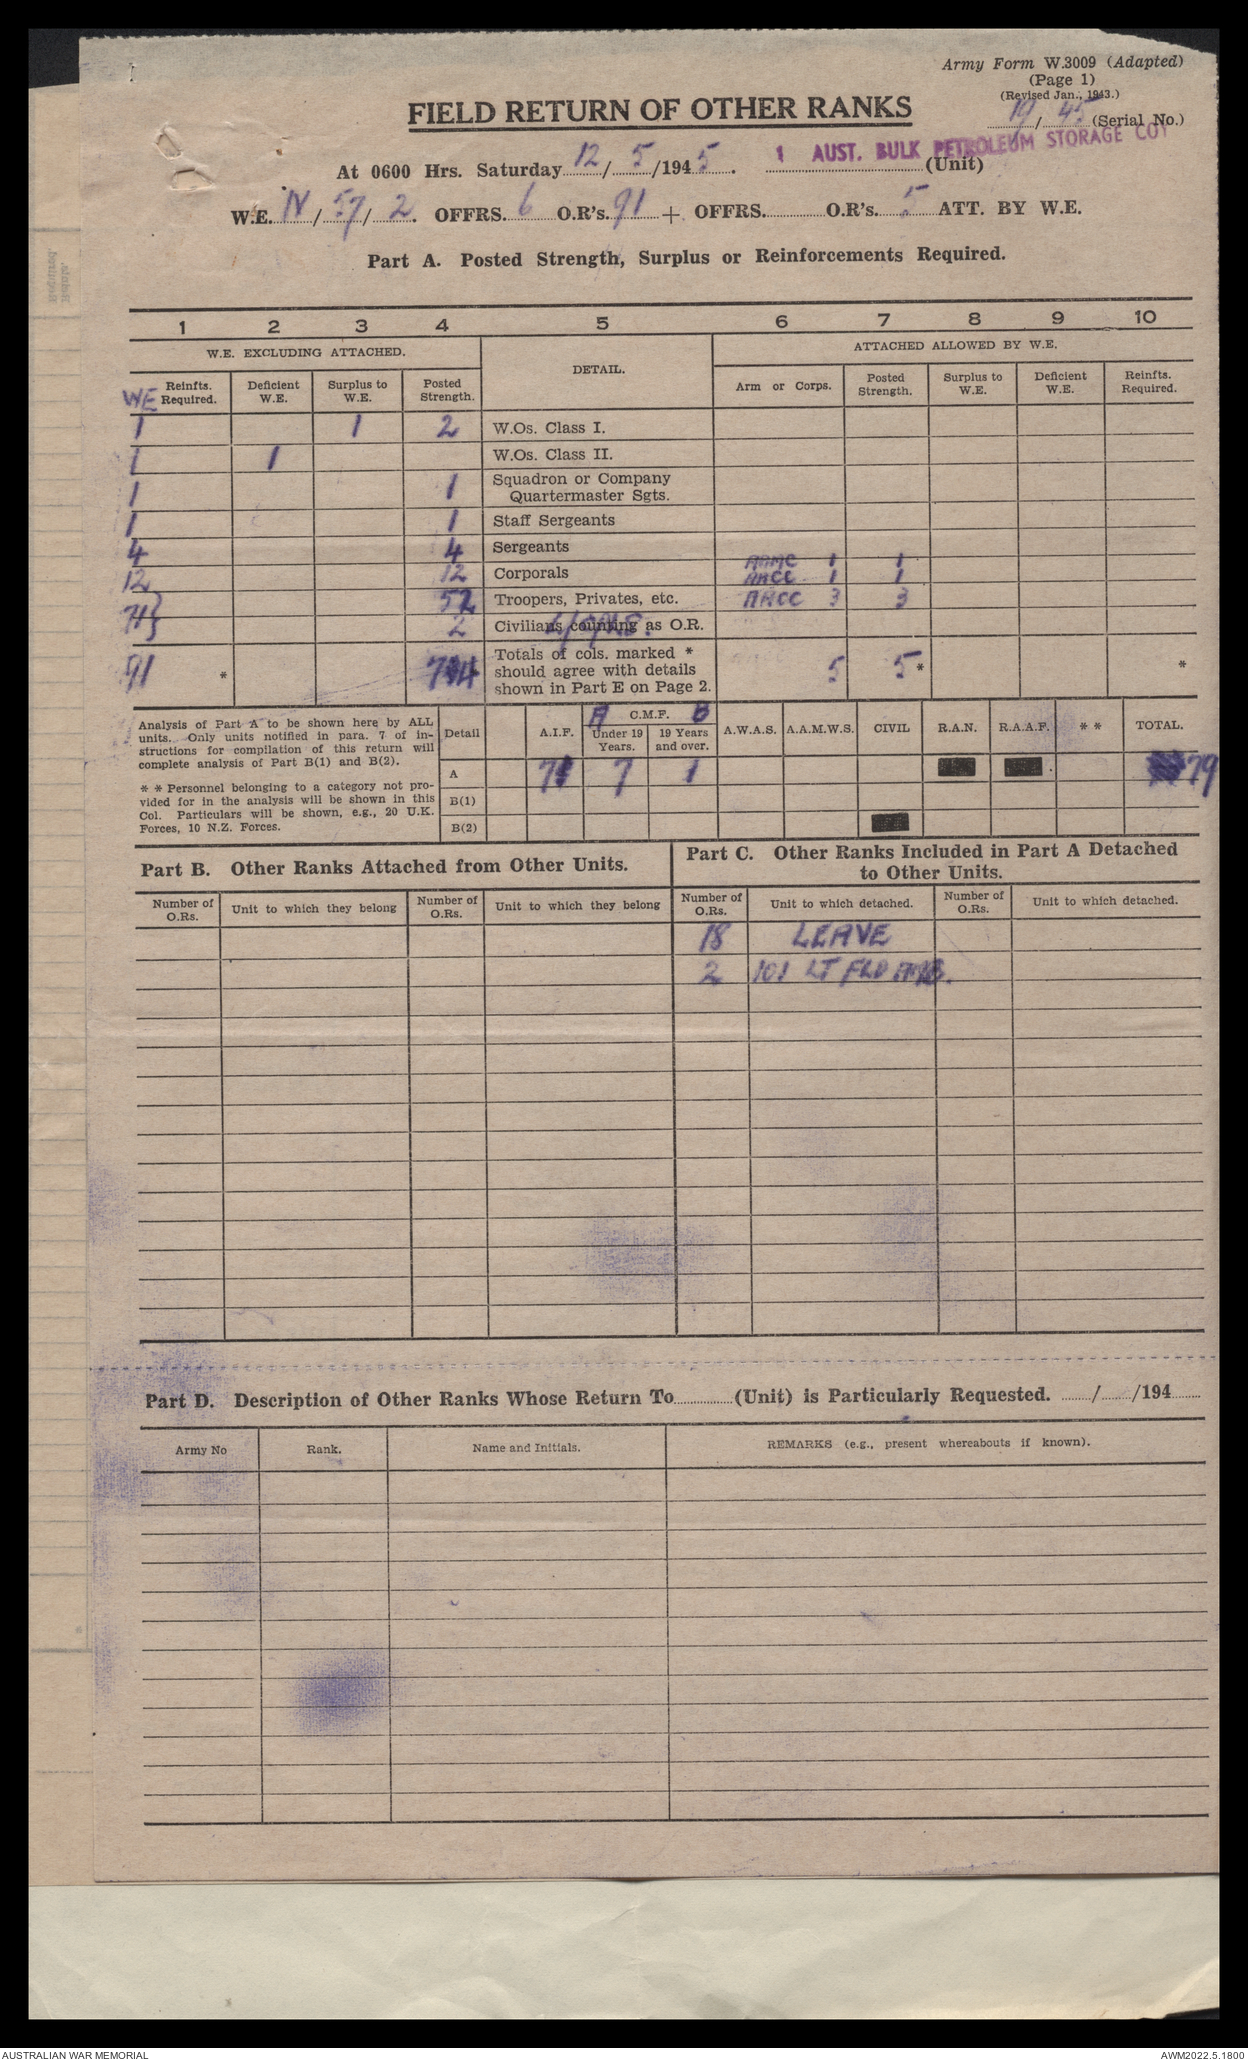 Army Form W.3009 (Adapted)
(Page 1)
(Revised Jan., 1943.)
19/45 (Serial No.)
FIELD RETURN OF OTHER RANKS
At 0600 Hrs. Saturday 12/5/1945. 1 AUST. BULK PETROLEUM STORAGE COY (Unit)
W.E. IV/57/2. OFFRS. 6 O.R's. 91 + OFFRS. O.R's. 5 ATT. BY W.E.
Part A. Posted Strength, Surplus or Reinforcements Required.
1 2 3 4 5 6 7 8 9 10
W.E. EXCLUDING ATTACHED. DETAIL. ATTACHED ALLOWED BY W.E.
WE Reinfts. Required. Deficient W.E. Surplus to W.E. Posted Strength. Arm or Corps. Posted Strength. Surplus to W.E. Deficient W.E. Reinfts. Required.
1 1 2 W.Os. Class I.
1 1 W.Os. Class II.
1 1 Squadron or Company Quartermaster Sgts.
1 1 Staff Sergeants
4 4 Sergeants
12 12 Corporals AAMC 1 1
AACC 1 1
71} 52 Troopers, Privates, etc. AACC 3 3
2 Civilians counting as O.R. L/CPLS.
91 * 74 Totals of cols. marked * should agree with details shown in Part E on Page 2. 5 5 * *
Analysis of Part A to be shown here by ALL
units. Only units notified in para. 7 of in-
structions for compilation of this return will
complete analysis of Part B(1) and B(2).
* * Personnel belonging to a category not pro-
vided for in the analysis will be shown in this
Col. Particulars will be shown, e.g., 20 U.K.
Forces, 10 N.Z. Forces.
Detail A.I.F. A C.M.F. B A.W.A.S. A.A.M.W.S. CIVIL R.A.N. R.A.A.F. * * TOTAL.
Under 19 Years. 19 Years and over.
A 71 7 1 79
B(1)
B(2)
Part B. Other Ranks Attached from Other Units.
Number of O.Rs. Unit to which they belong Number of O.Rs. Unit to which they belong
Part C. Other Ranks Included in Part A Detached
to Other Units.
Number of O.Rs. Unit to which detached. Number of O.Rs. Unit to which detached.
18 LEAVE
2 101 LT FLD AMB.
Part D. Description of Other Ranks Whose Return To (Unit) is Particularly Requested. / /194
Army No Rank. Name and Initials. REMARKS (e.g., present whereabouts if known).
AUSTRALIAN WAR MEMORIAL AWM2022.5.1800